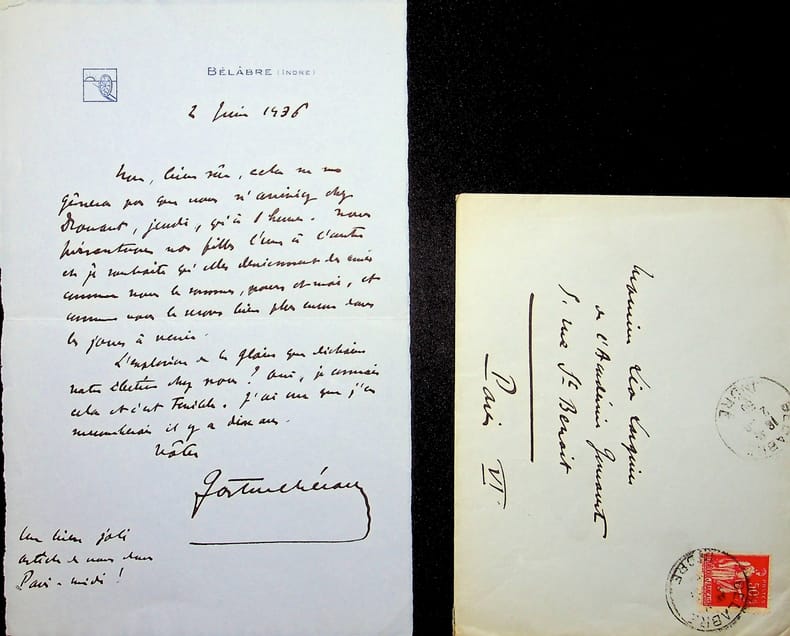 BÉLÂBRE (INDRE)
2 Juin 1936
Non, bien sûr, cela ne me
gênera pas que vous n'arriviez chez
Drouant, jeudi, qu'à 1 heure. Nous
présenterons nos filles l'une à l'autre
et je souhaite qu'elles deviennent des amies
comme nous le sommes, vous et moi, et
comme nous le serons bien plus encore dans
les jours à venir.
L'explosion de la gloire que
votre chez nous ? Oui, je connais
cela et c'est terrible. J'ai cru que j'en
il y a dix ans.
Vôtre
Un bien joli
article de vous dans
Paris-midi !
Monsieur Léo Larguier
de l'Académie Goncourt
5. rue St Benoit
Paris VI
BELABRE
INDRE
BELABRE
INDRE
50c